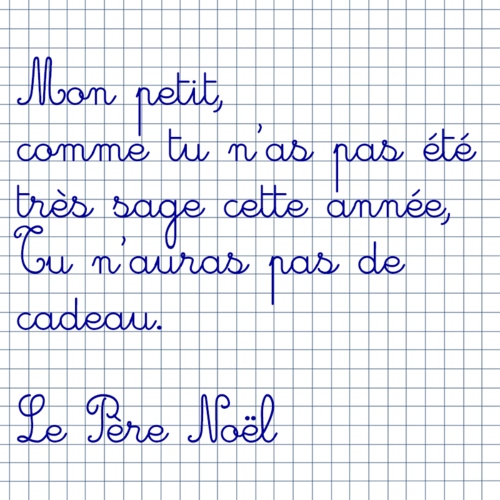 Mon petit,
comme tu n'as pas été
très sage cette année,
Tu n'auras pas de
cadeau.
Le Père Noël